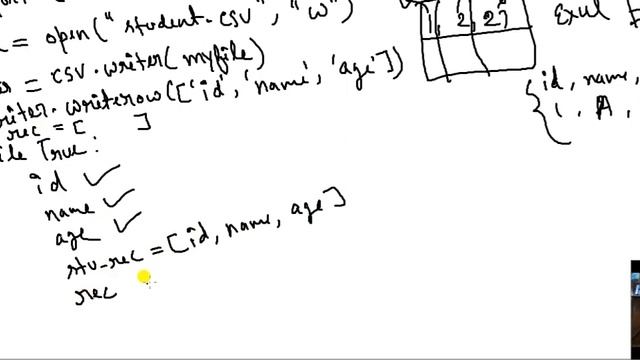 = open("student.csv", "w")
= csv.writer(myfile)
writer.writerow(['id', 'name', 'age'])
rec = [ ]
ile True:
id ✓
name ✓
age ✓
stu_rec = [id, name, age]
rec
1, 2, 25
id, name,
1, A,